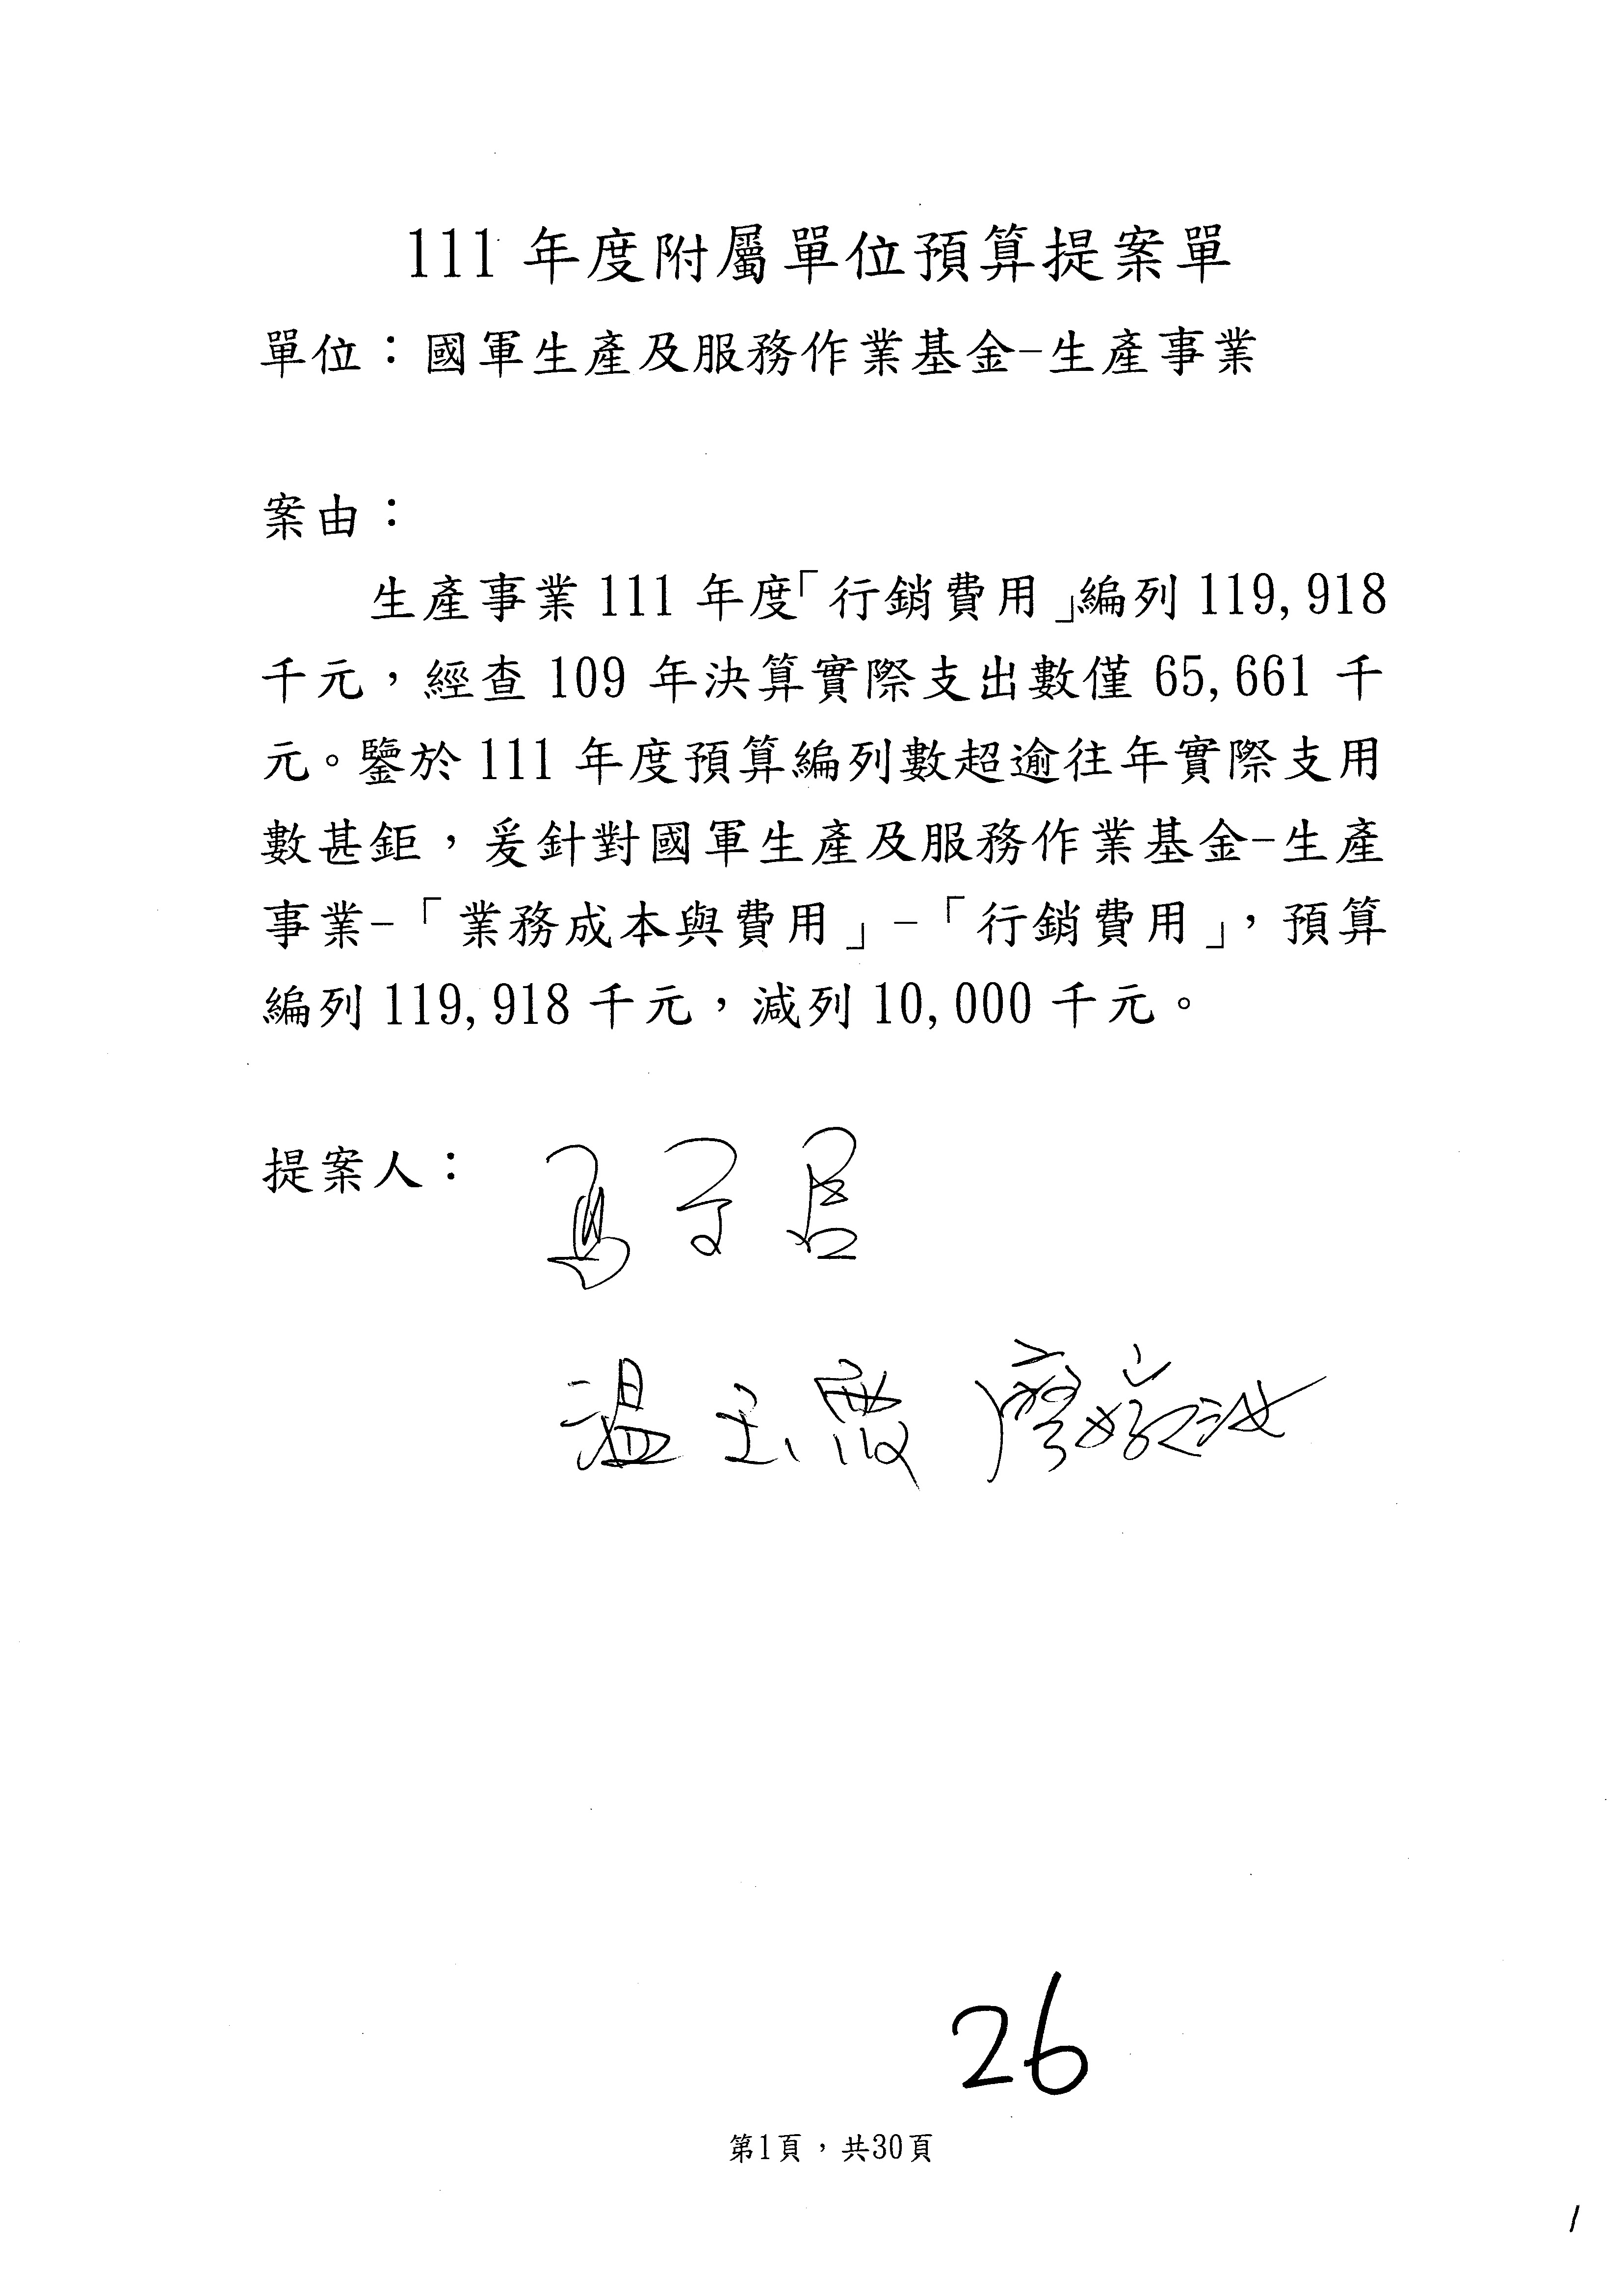 111 年度附屬單位預算提案單
單位：國軍生產及服務作業基金-生產事業
案由：
生產事業 111 年度「行銷費用」編列 119,918
千元，經查 109 年決算實際支出數僅 65,661 千
元。鑒於 111 年度預算編列數超逾往年實際支用
數甚鉅，爰針對國軍生產及服務作業基金-生產
事業-「業務成本與費用」-「行銷費用」，預算
編列 119,918 千元，減列 10,000 千元。
提案人：
馬文君
溫玉霞 廖婉汝
26
第1頁，共30頁
1